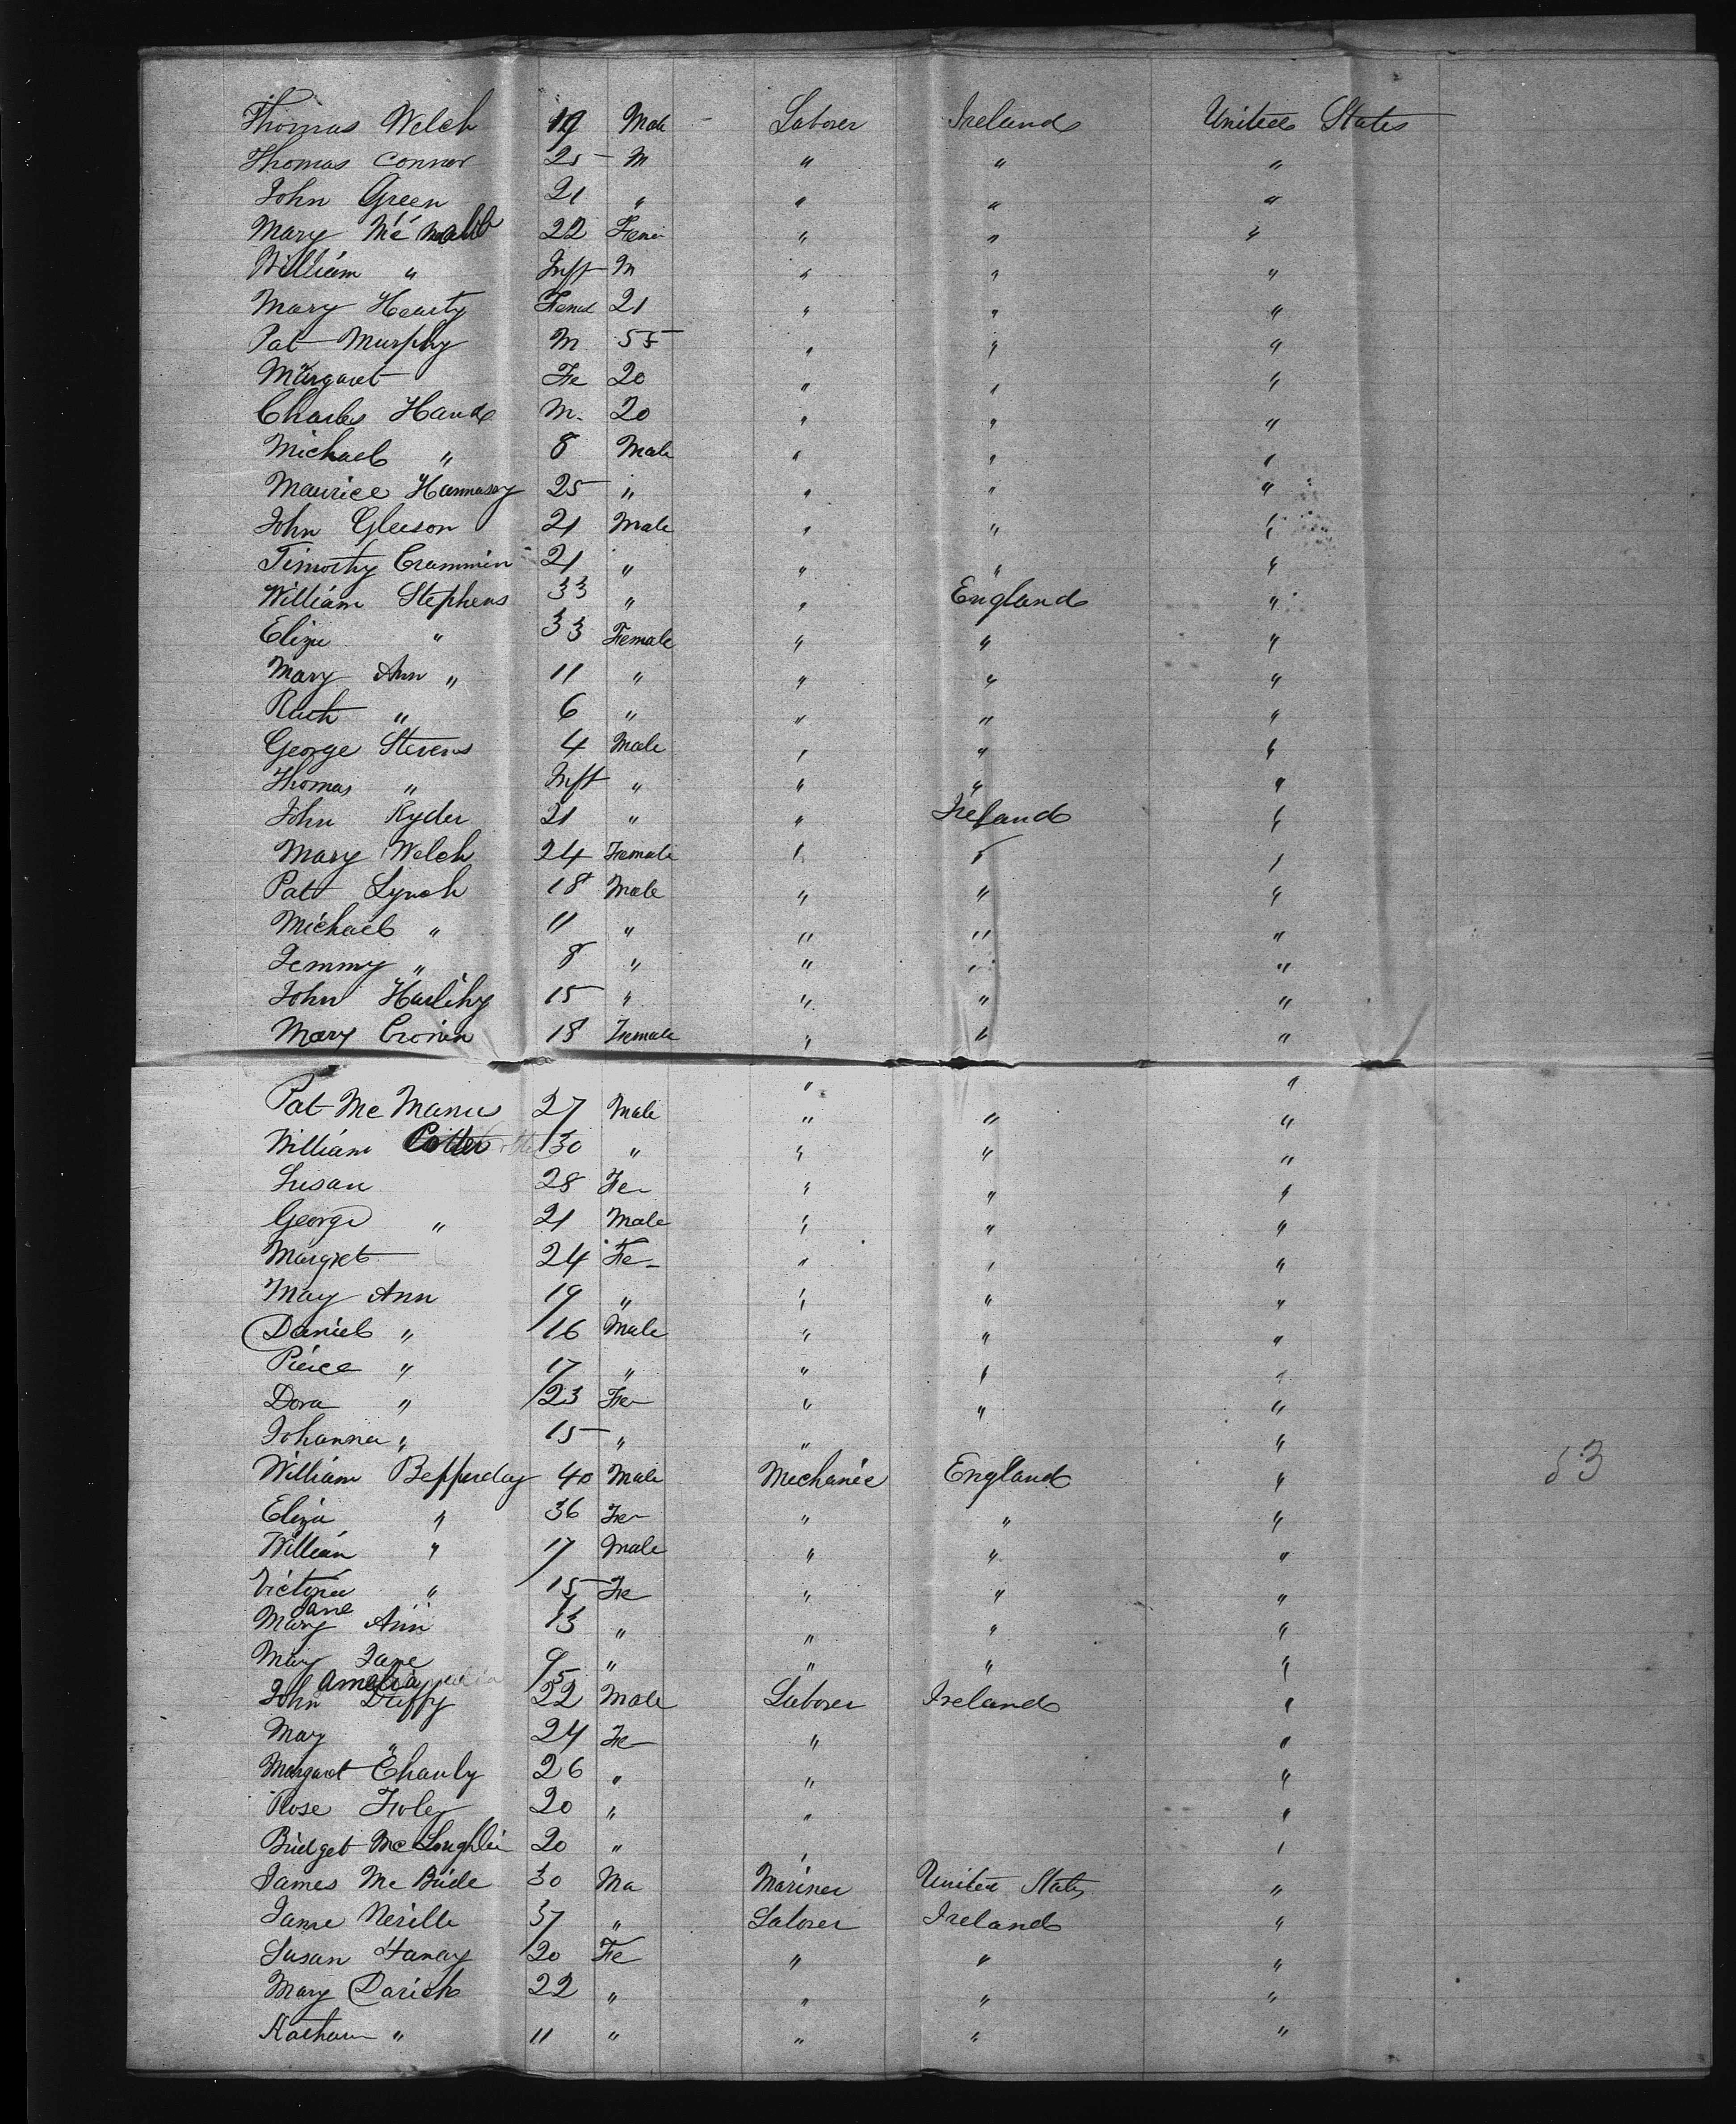 Thomas Welch 19 Male - Laborer Ireland United States
Thomas Connor 25 M " " "
John Green 21 " " " "
Mary 22 Fem " " "
William " Inft M " " "
Mary Hearty Femal 21 " " "
Pat Murphy M 55 " " "
Margaret Fe 20 " " "
Charles Hand M. 20 " " "
Michael " 8 Male " " "
Maurice Hannasay 25 " " " "
John Gleeson 21 Male " " "
Timothy Crammin 21 " " " "
William Stephens 33 " " England "
Eliza " 33 Female " " "
Mary Ann " 11 " " " "
Ruth " 6 " " " "
George Stevens 4 Male " " "
Thomas " Inft " " " "
John Ryder 21 " " Ireland "
Mary Welch 24 Female " " "
Pat Lynch 18 Male " " "
Michael " 11 " " " "
Jemmy " 8 " " " "
John Harlihy 15 " " " "
Mary Cronin 18 Female " " "
" "
Pat Mc Manus 27 Male " " "
William Cotter 30 " " " "
Susan 28 Fe " " "
George " 21 Male " " "
Margret 24 Fe " " "
May Ann 19 " " " "
Daniel " 16 Male " " "
Pierce " 17 " " " "
Dora " 23 Fe " " "
Johanna " 15 " " "
William Bepperday 40 Male Mechanic England " 53
Eliza " 36 Fe " " "
William " 17 Male " " "
Victoria " 15 Fe " " "
Jane
Mary Ann 13 " " " "
May Jane 9 " " " "
Amelia 5
John Duffy 22 Male Laborer Ireland "
Mary " 24 Fe " "
Margaret Chanly 26 " " "
Rose Foley 20 " " "
Bridget McLoughlin 20 " " "
James Mc Bride 30 Ma Mariner United States "
Jame Neville 37 " Laborer Ireland "
Susan Fanay 20 Fe " " "
Mary Darich 22 " " " "
" 11 " " " "